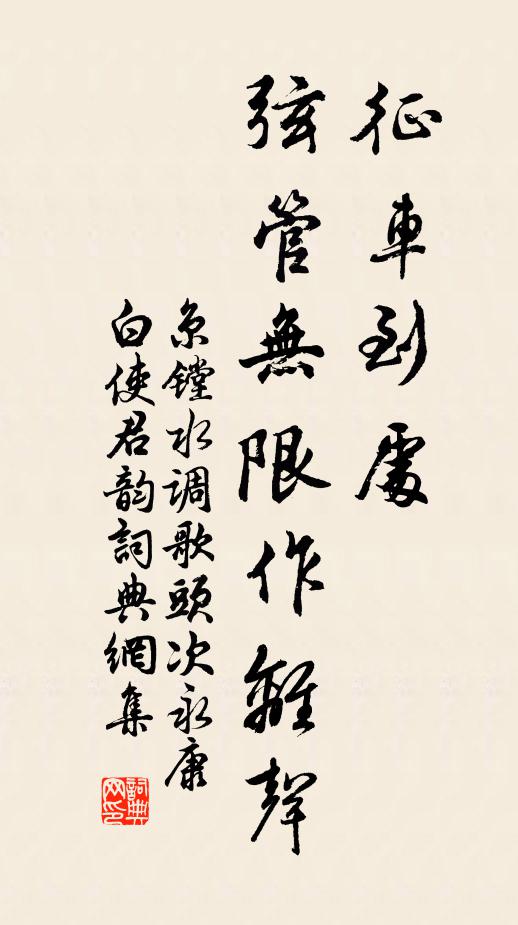 征車到處
弦管無限作離聲
京鏜水调歌頭次永康
白使君韵詞典網集
詞典
网印